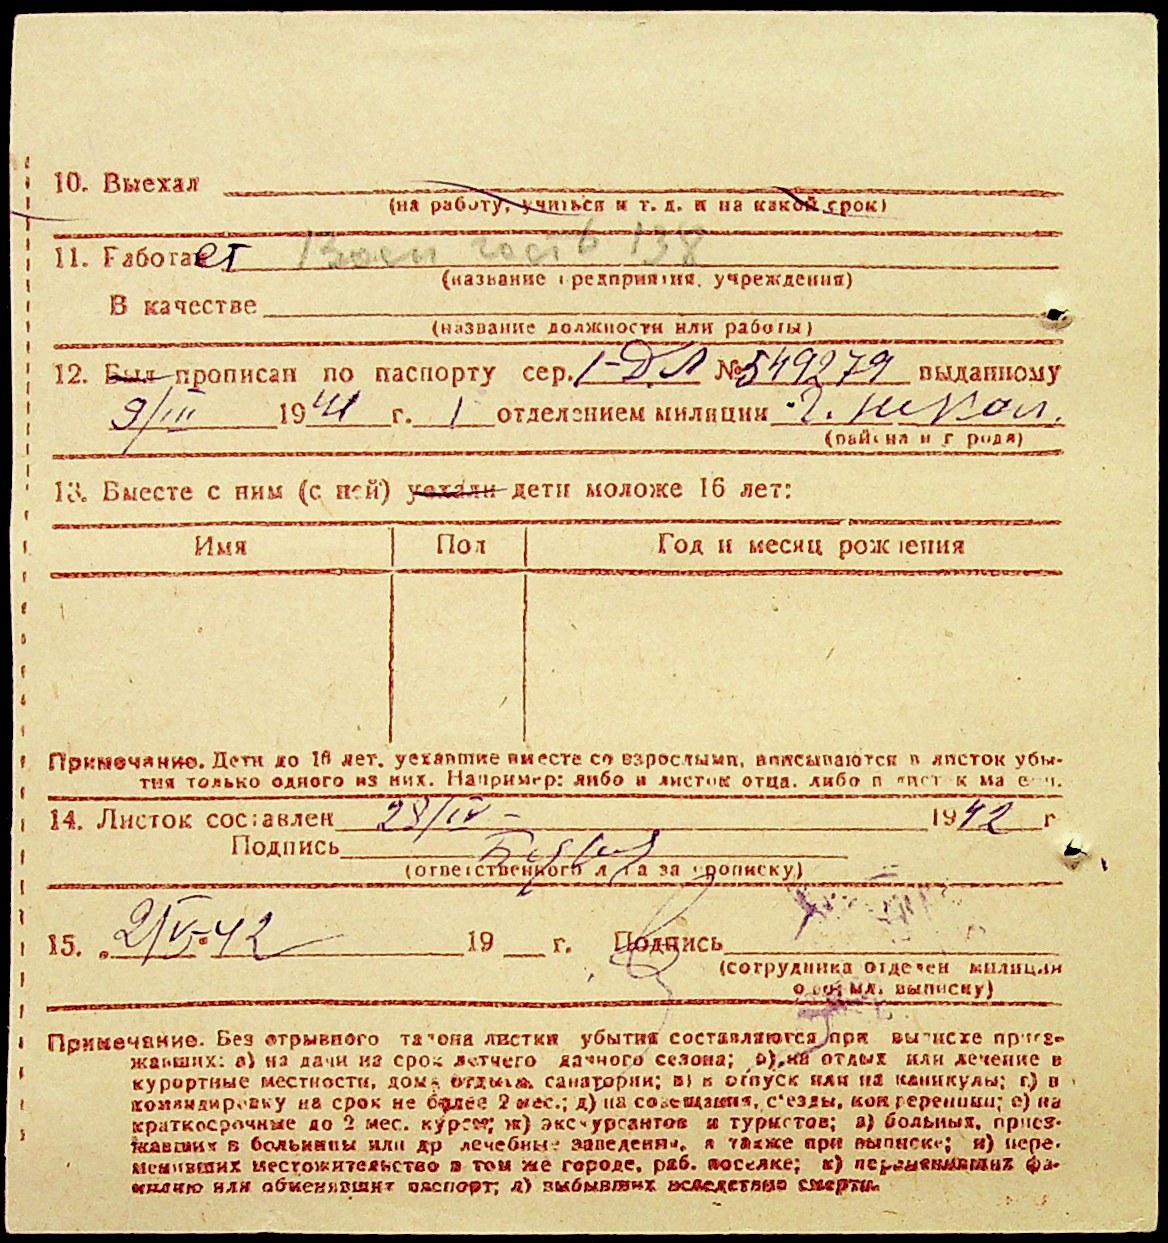 10. Выехал
(на работу, учиться и т. д. и на какой срок)
11. Работает
(название предприятия, учреждения)
В качестве
(название должности или работы)
12. Был прописан по паспорту сер. I-ДЛ № 549279 выданному
9/III 1941 г. 1 отделением милиции г.
(района и города)
13. Вместе с ним (с ней) уехали дети моложе 16 лет:
Имя Пол Год и месяц рождения
Примечание. Дети до 16 лет, уехавшие вместе со взрослыми, вписываются в листок убы-
тия только одного из них. Например: либо в листок отца, либо в листок матери.
14. Листок составлен 28/IV - 1942 г
Подпись
(ответственного лица за прописку)
15. 2/V-42 19 г. Подпись
(сотрудника отделен милиции
выписку)
Примечание. Без отрывного талона листки убытия составляются при выписке приез-
жавших: а) на дачи на срок летнего дачного сезона; б) на отдых или лечение в
курортные местности, дома отдыха, санатории; в) в отпуск или на каникулы; г) в
командировку на срок не более 2 мес.; д) на совещания, съезды, конференции; е) на
краткосрочные до 2 мес. курсы; ж) экскурсантов и туристов; з) больных, приез-
жавших в больницы или др лечебные заведения, а также при выписке; и) пере-
менивших местожительство в том же городе, раб. поселке; к) переменивших фа-
милию или обменявших паспорт; л) выбывших вследствие смерти.